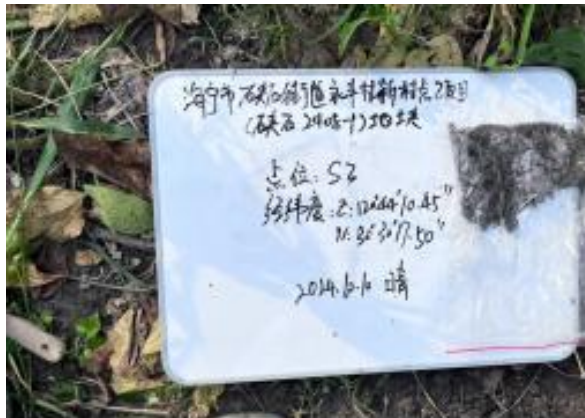 海宁市硖石街道永丰村新村点2项目
(硖石2408-1)地块
点位:S3
经纬度:E:120°44'10.45"
N:30°30'17.50"
2024.10.10 晴